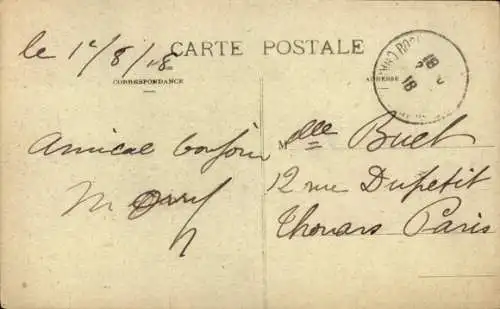 le 1r/8/18
CARTE POSTALE
CORRESPONDANCE
ADRESSE
Amical bonjour
Mlle Buet
12 rue Dupetit
Thouars Paris